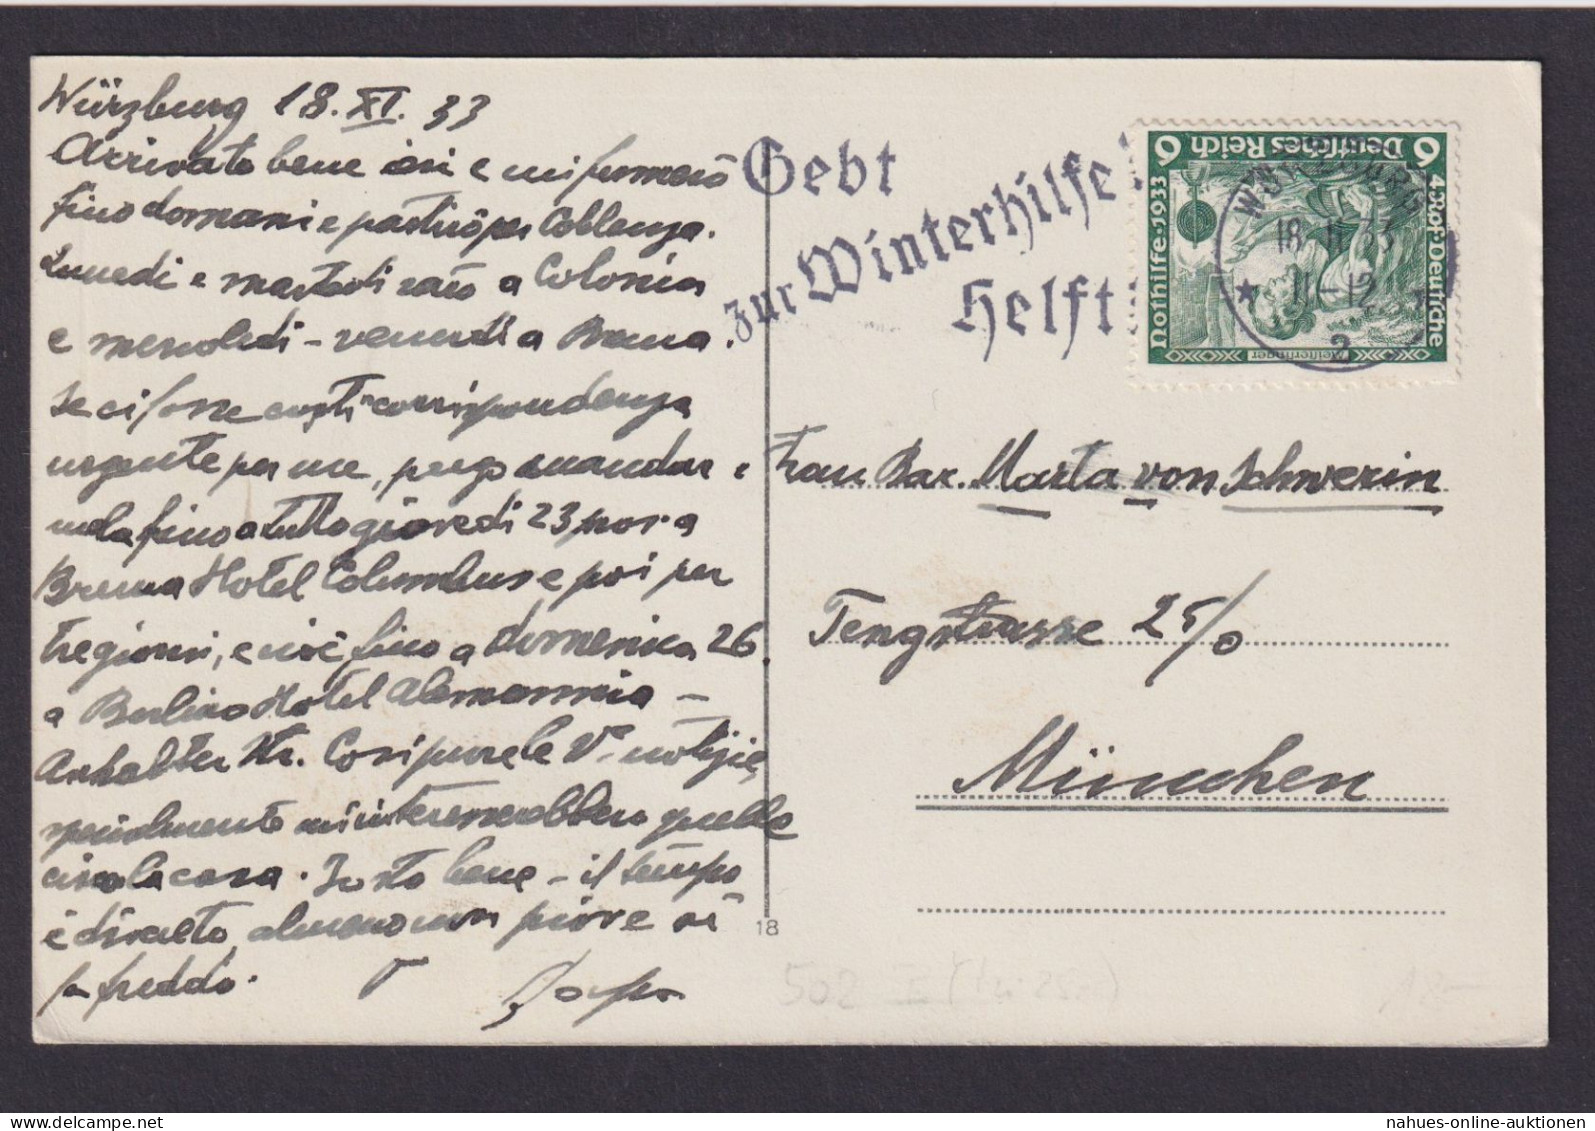 Würzburg 18. XI. 33
Arrivato bene ieri e mi fermerò
fino domani e partirò per Coblenza.
Lunedi e martedi sarò a Colonia
e mercoledi - venerdi a Brema.
Se ci fosse costi corrispondenza
urgente per me, prego mandar
mela fino a tutto giovedi 23 nov. a
Brema Hotel Columbus e poi per
tre giorni, e cioè fino a domenica 26.
a Berlino Hotel Alemannia -
Anhalter Str. Cosi pure le V. notizie,
specialmente mi interesserebbero quelle
circa la casa. Io sto bene - il tempo
è discreto, almeno non piove nè
fa freddo.
Gebt
zur Winterhilfe!
Helft
6 Deutsches Reich 6
4 Rpf · Deutsche
Nothilfe · 1933
Meistersinger
WÜRZBURG
18.11.33
11-12
2
Frau Bar. Marta von Schwerin
Tengstrasse 25/0
München
18
502 I
12-
nahues-online-auktionen